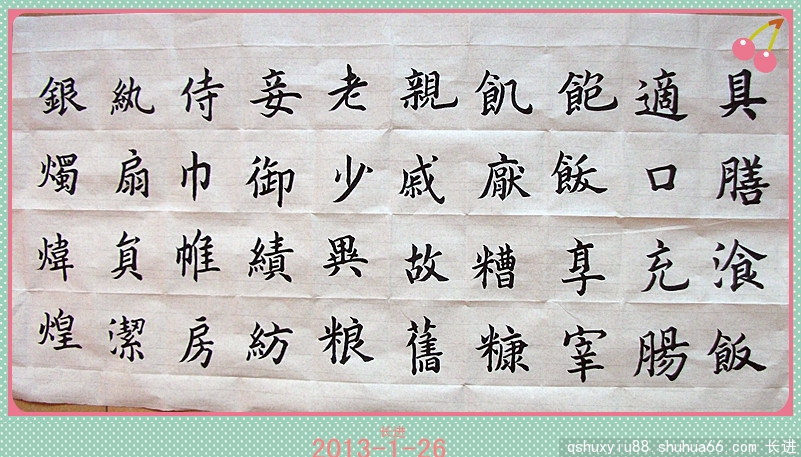 具膳湌飯
適口充腸
飽飫享宰
飢厭糟糠
親戚故舊
老少異粮
妾御績紡
侍巾帷房
紈扇員潔
銀燭煒煌
长进
2013-1-26
qshuxyiu88.shuhua66.com 长进